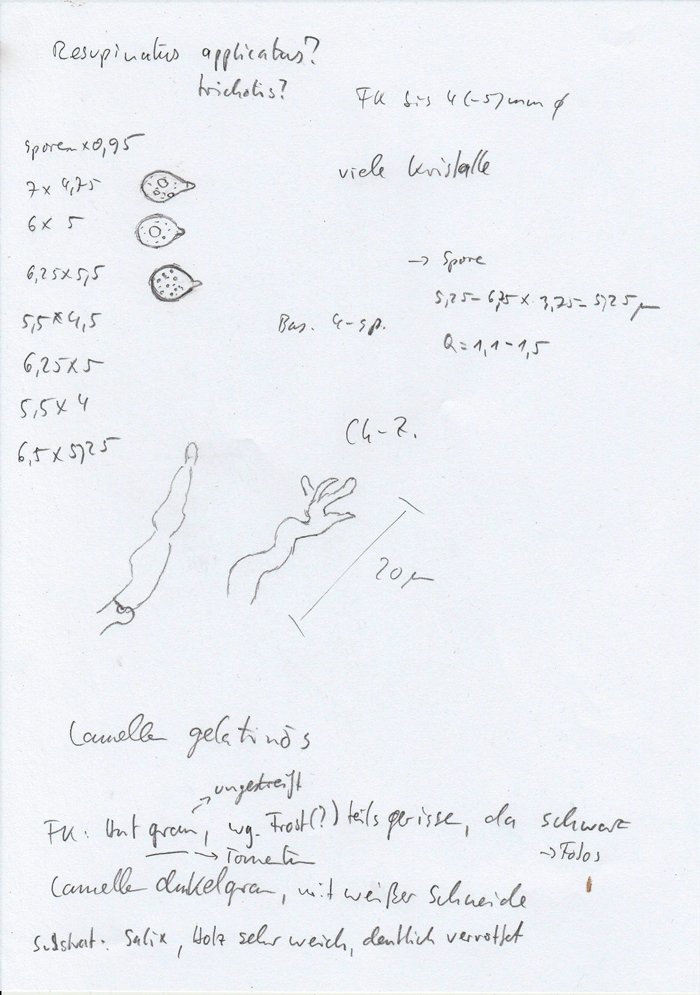 Resupinatus applicatus?
trichotis?
FK bis 4(-5)mm ϕ
Sporen x 0,95
viele Kristalle
7 x 4,75
6 x 5
→ Spore
6,25 x 5,5
5,25-6,75 x 3,75-5,25 µm
5,5 x 4,5
Bas. 4-sp.
Q=1,1-1,5
6,25 x 5
5,5 x 4
Ch-Z.
6,5 x 5,25
20 µm
Lamellen gelatinös
→ ungestreift
FK: Hut grau, wg. Frost(?) teils gerissen, da schwarz
→ Tomentum
→ Fotos
Lamellen dunkelgrau, mit weißer Schneide
Substrat: Salix, Holz sehr weich, deutlich verrottet